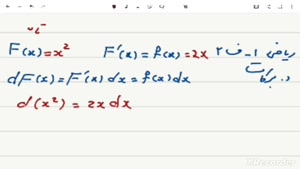 F(x)=x² F'(x)=f(x)=2x ریاضی ۱ - ف ۲
dF(x)=F'(x)dx=f(x)dx
d(x²)=2xdx